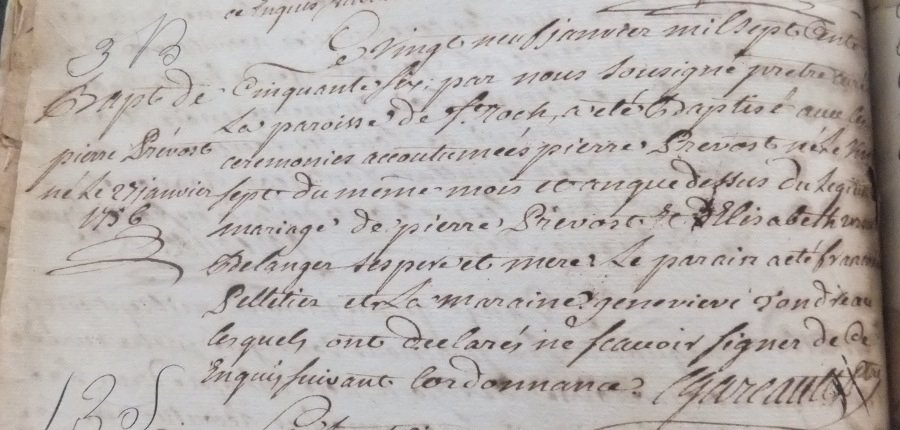 ce Enquis
3 B
Bapt de
pierre Prévost
né Le 27 janvier
1756
Le vingt neuf janvier mil sept Cents
Cinquante six, par nous Sousigné pretre curé
La paroisse de st Roch, a eté Baptisé avec les
ceremonies accoutumées pierre Prevost né Le vingt
sept du même mois et an que dessus du Legitime
mariage de pierre Prevost Et d'Elisabeth
Belanger ses pere et mere. Le parain a eté francois
Pelletier et La maraine genevieve Gondreau
lesquels ont declarés ne scavoir signer de ce
Enquis suivant lordonnance.